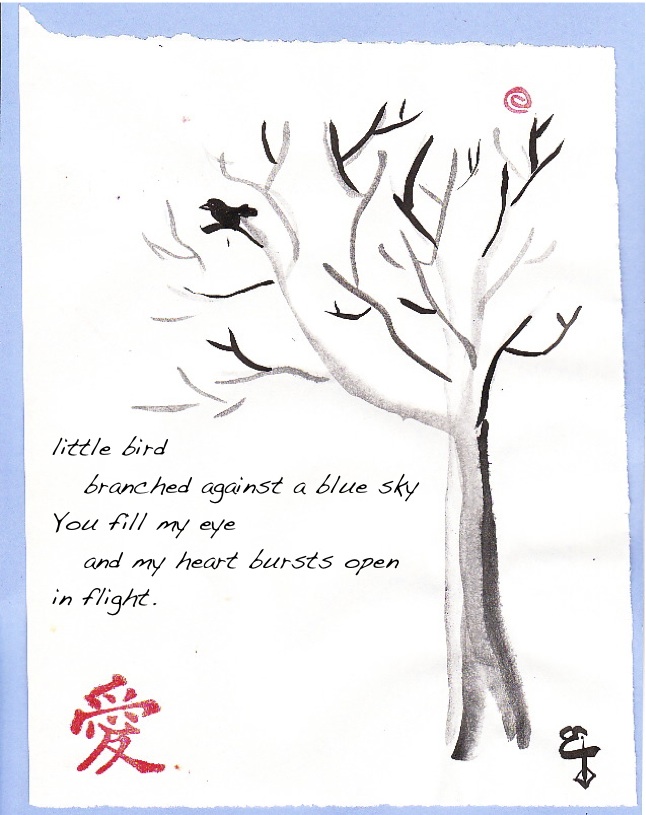 little bird
branched against a blue sky
You fill my eye
and my heart bursts open
in flight.
愛